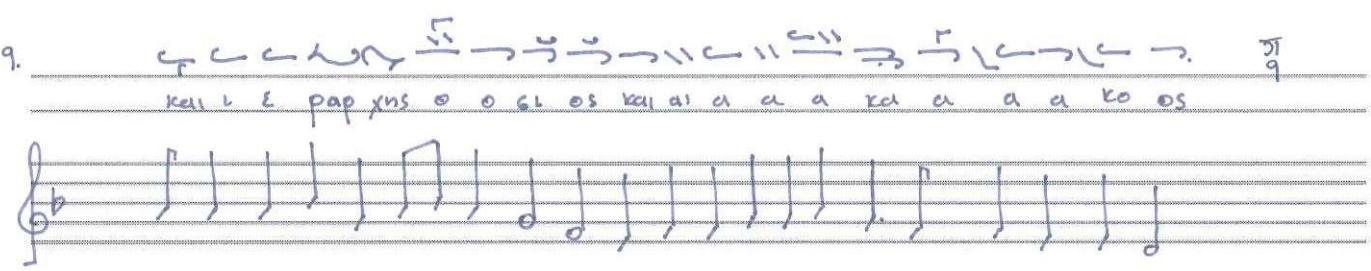 9. π 9
και ι ε ραρ χης ο ο σι ος και αι α α α κα α α α κο ος